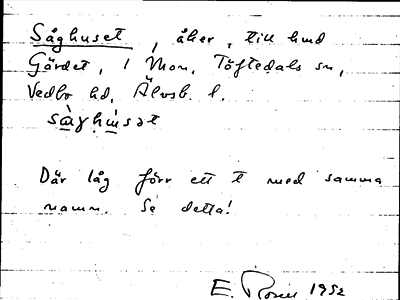 Såghuset, åker, till hmd
Gärdet, i Mon, Töftedals sn,
Vedbo hd, Älvsb. l.
sàghúsət
Där låg förr ett t med samma
namn. Se detta!
E. Rosén 1952